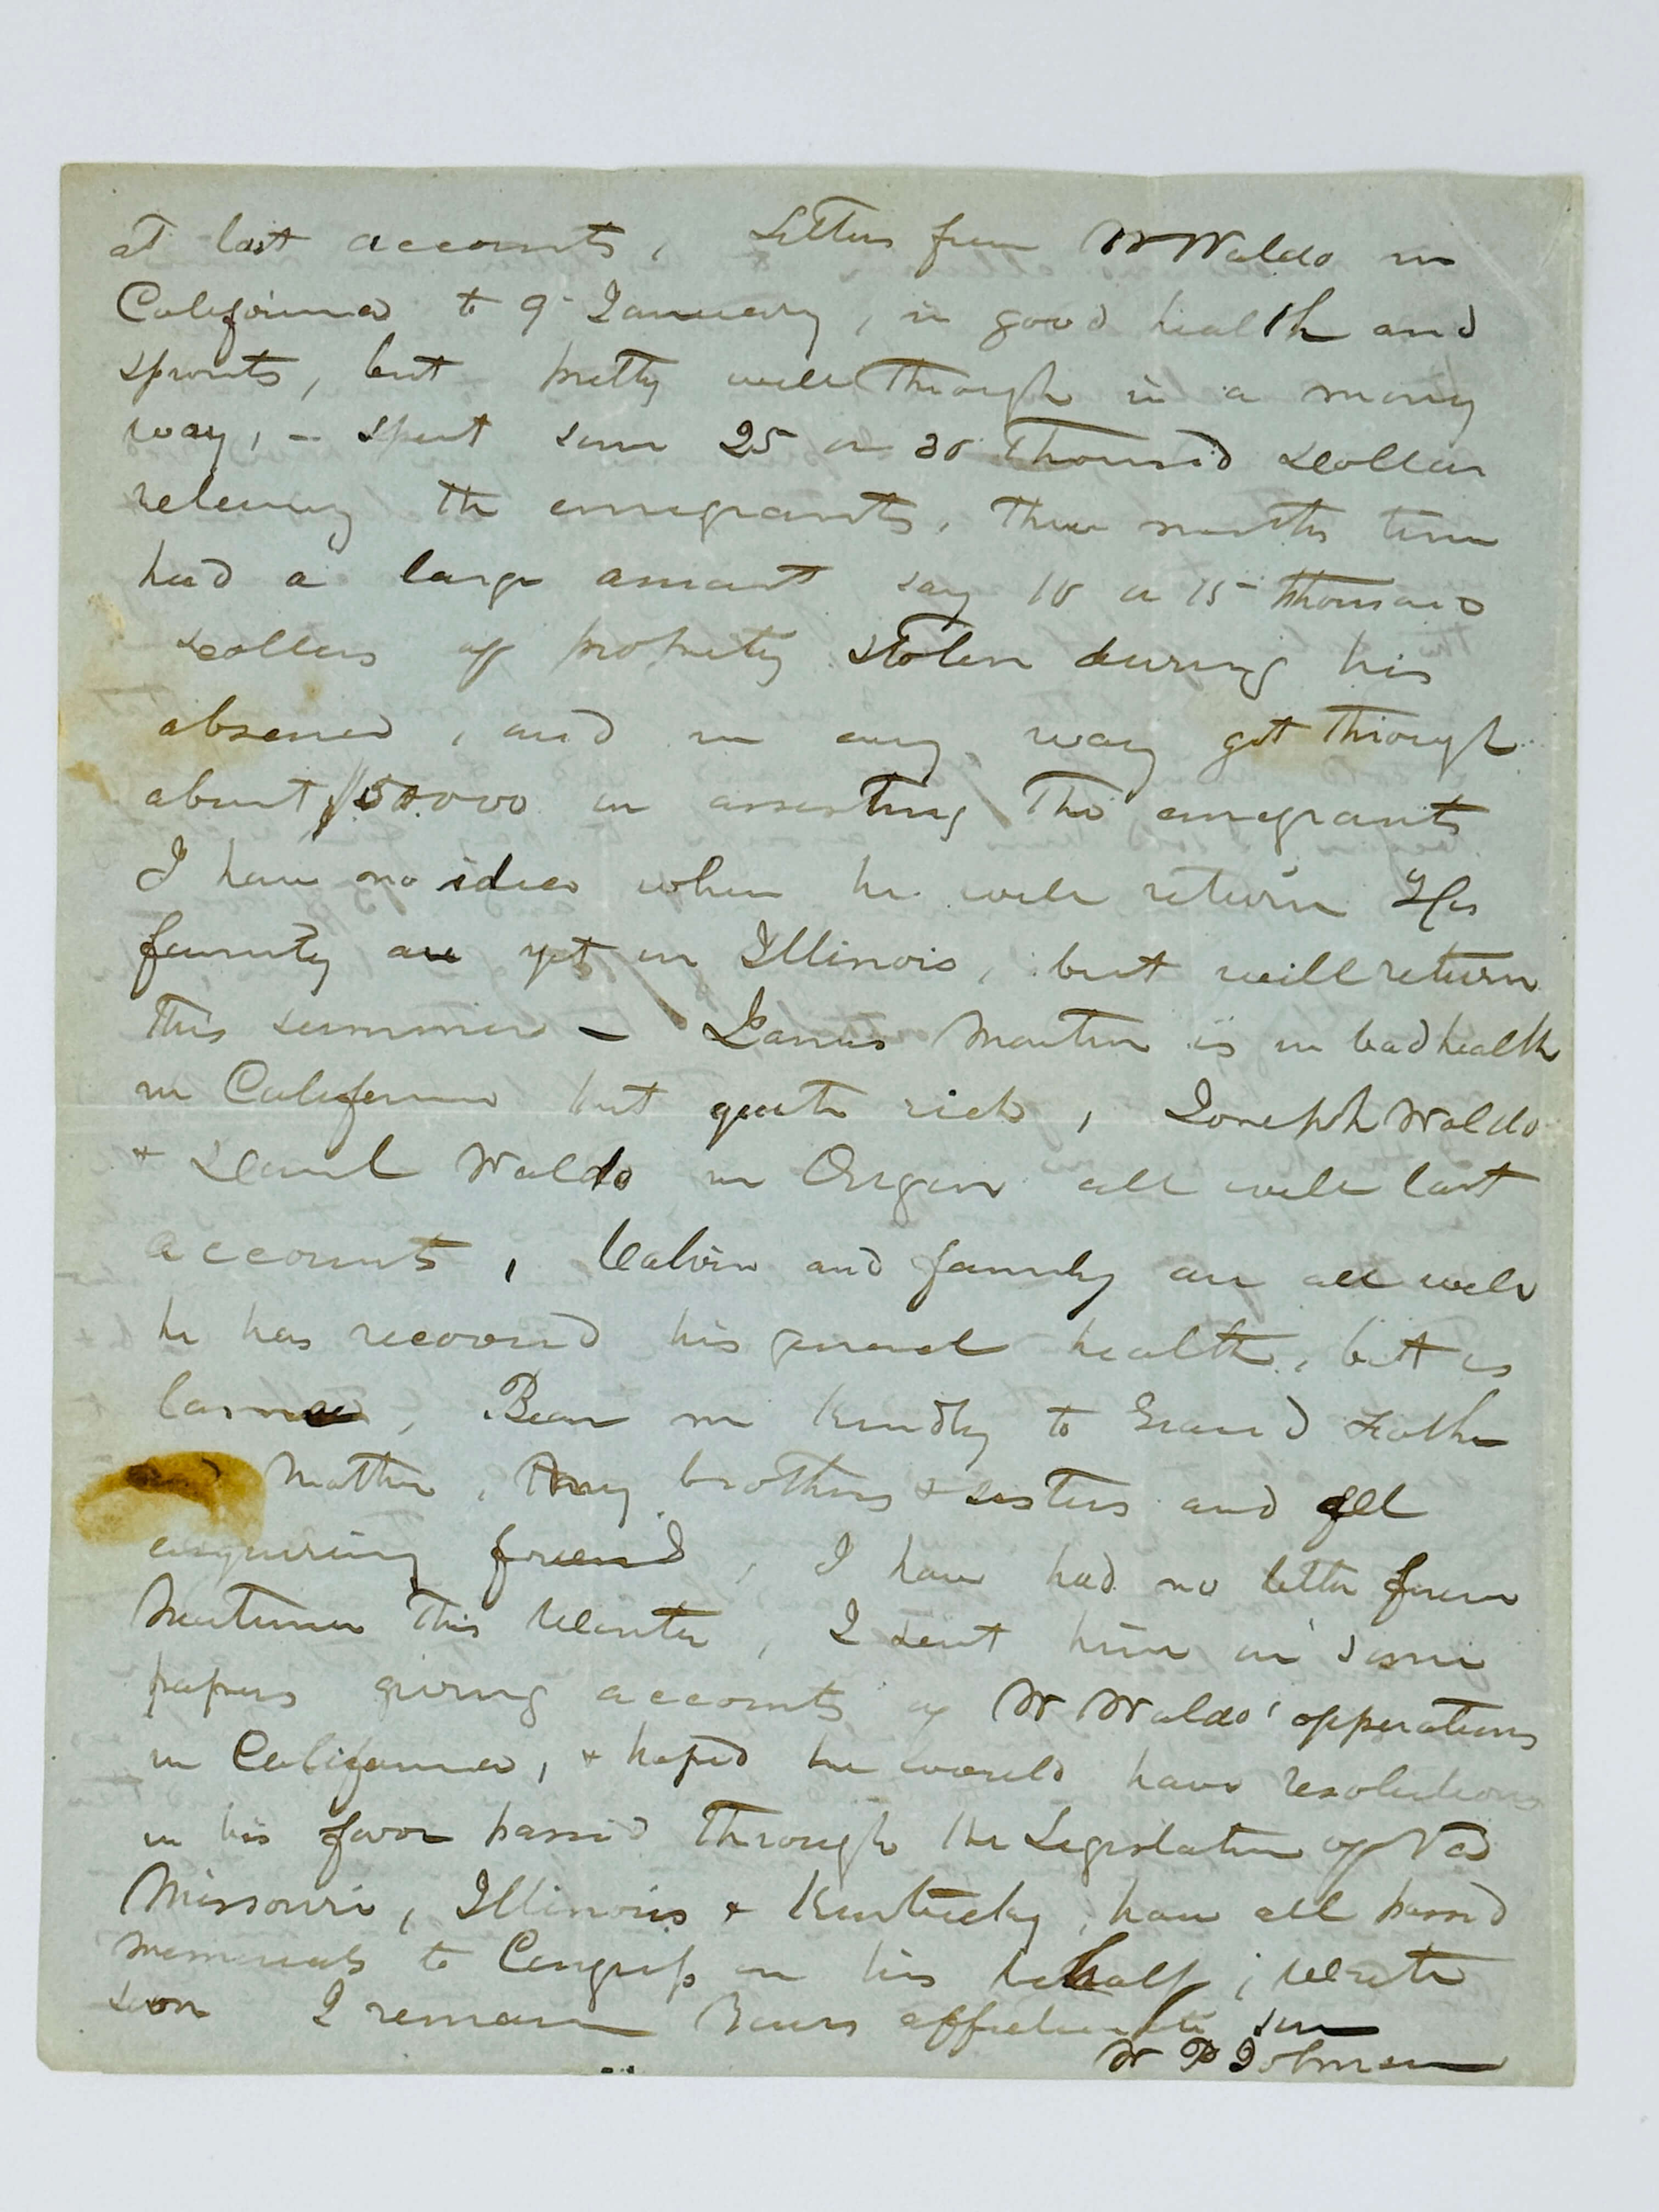 at last accounts, Letters from W Waldo in
California to 9 January, in good health and
spirits, but pretty well through in a money
way, – spent some 25 or 30 Thousand dollars
releiving the emigrants, three months time
had a large amount say 10 or 15 thousand
dollers of property stolen during his
absence, and in every way got through
about $50.000 in assisting The emigrants
I have no idea when he will return His
family are yet in Illinois, but will return
This summer – James Martin is in bad health
in California but quite rich, Joseph Waldo
+ Daniel Waldo in Oregon all well last
accounts, Calvin and family are all well
he has recoverd his general health, but is
lame, Bear me kindly to Grand Father
Mother, My brothers + sisters and all
enquiring friend, I have had no letter from
this Winter, I sent him on some
papers giving accounts of W Waldo' opperations
in California, + hoped he would have resolutions
in his favor passed Through the Legislature of Va
Missouri, Illinois + Kentucky, have all passed
memorials to Congress in his behalf; Write
soon I remain Yours affectionate son
W P Johnson